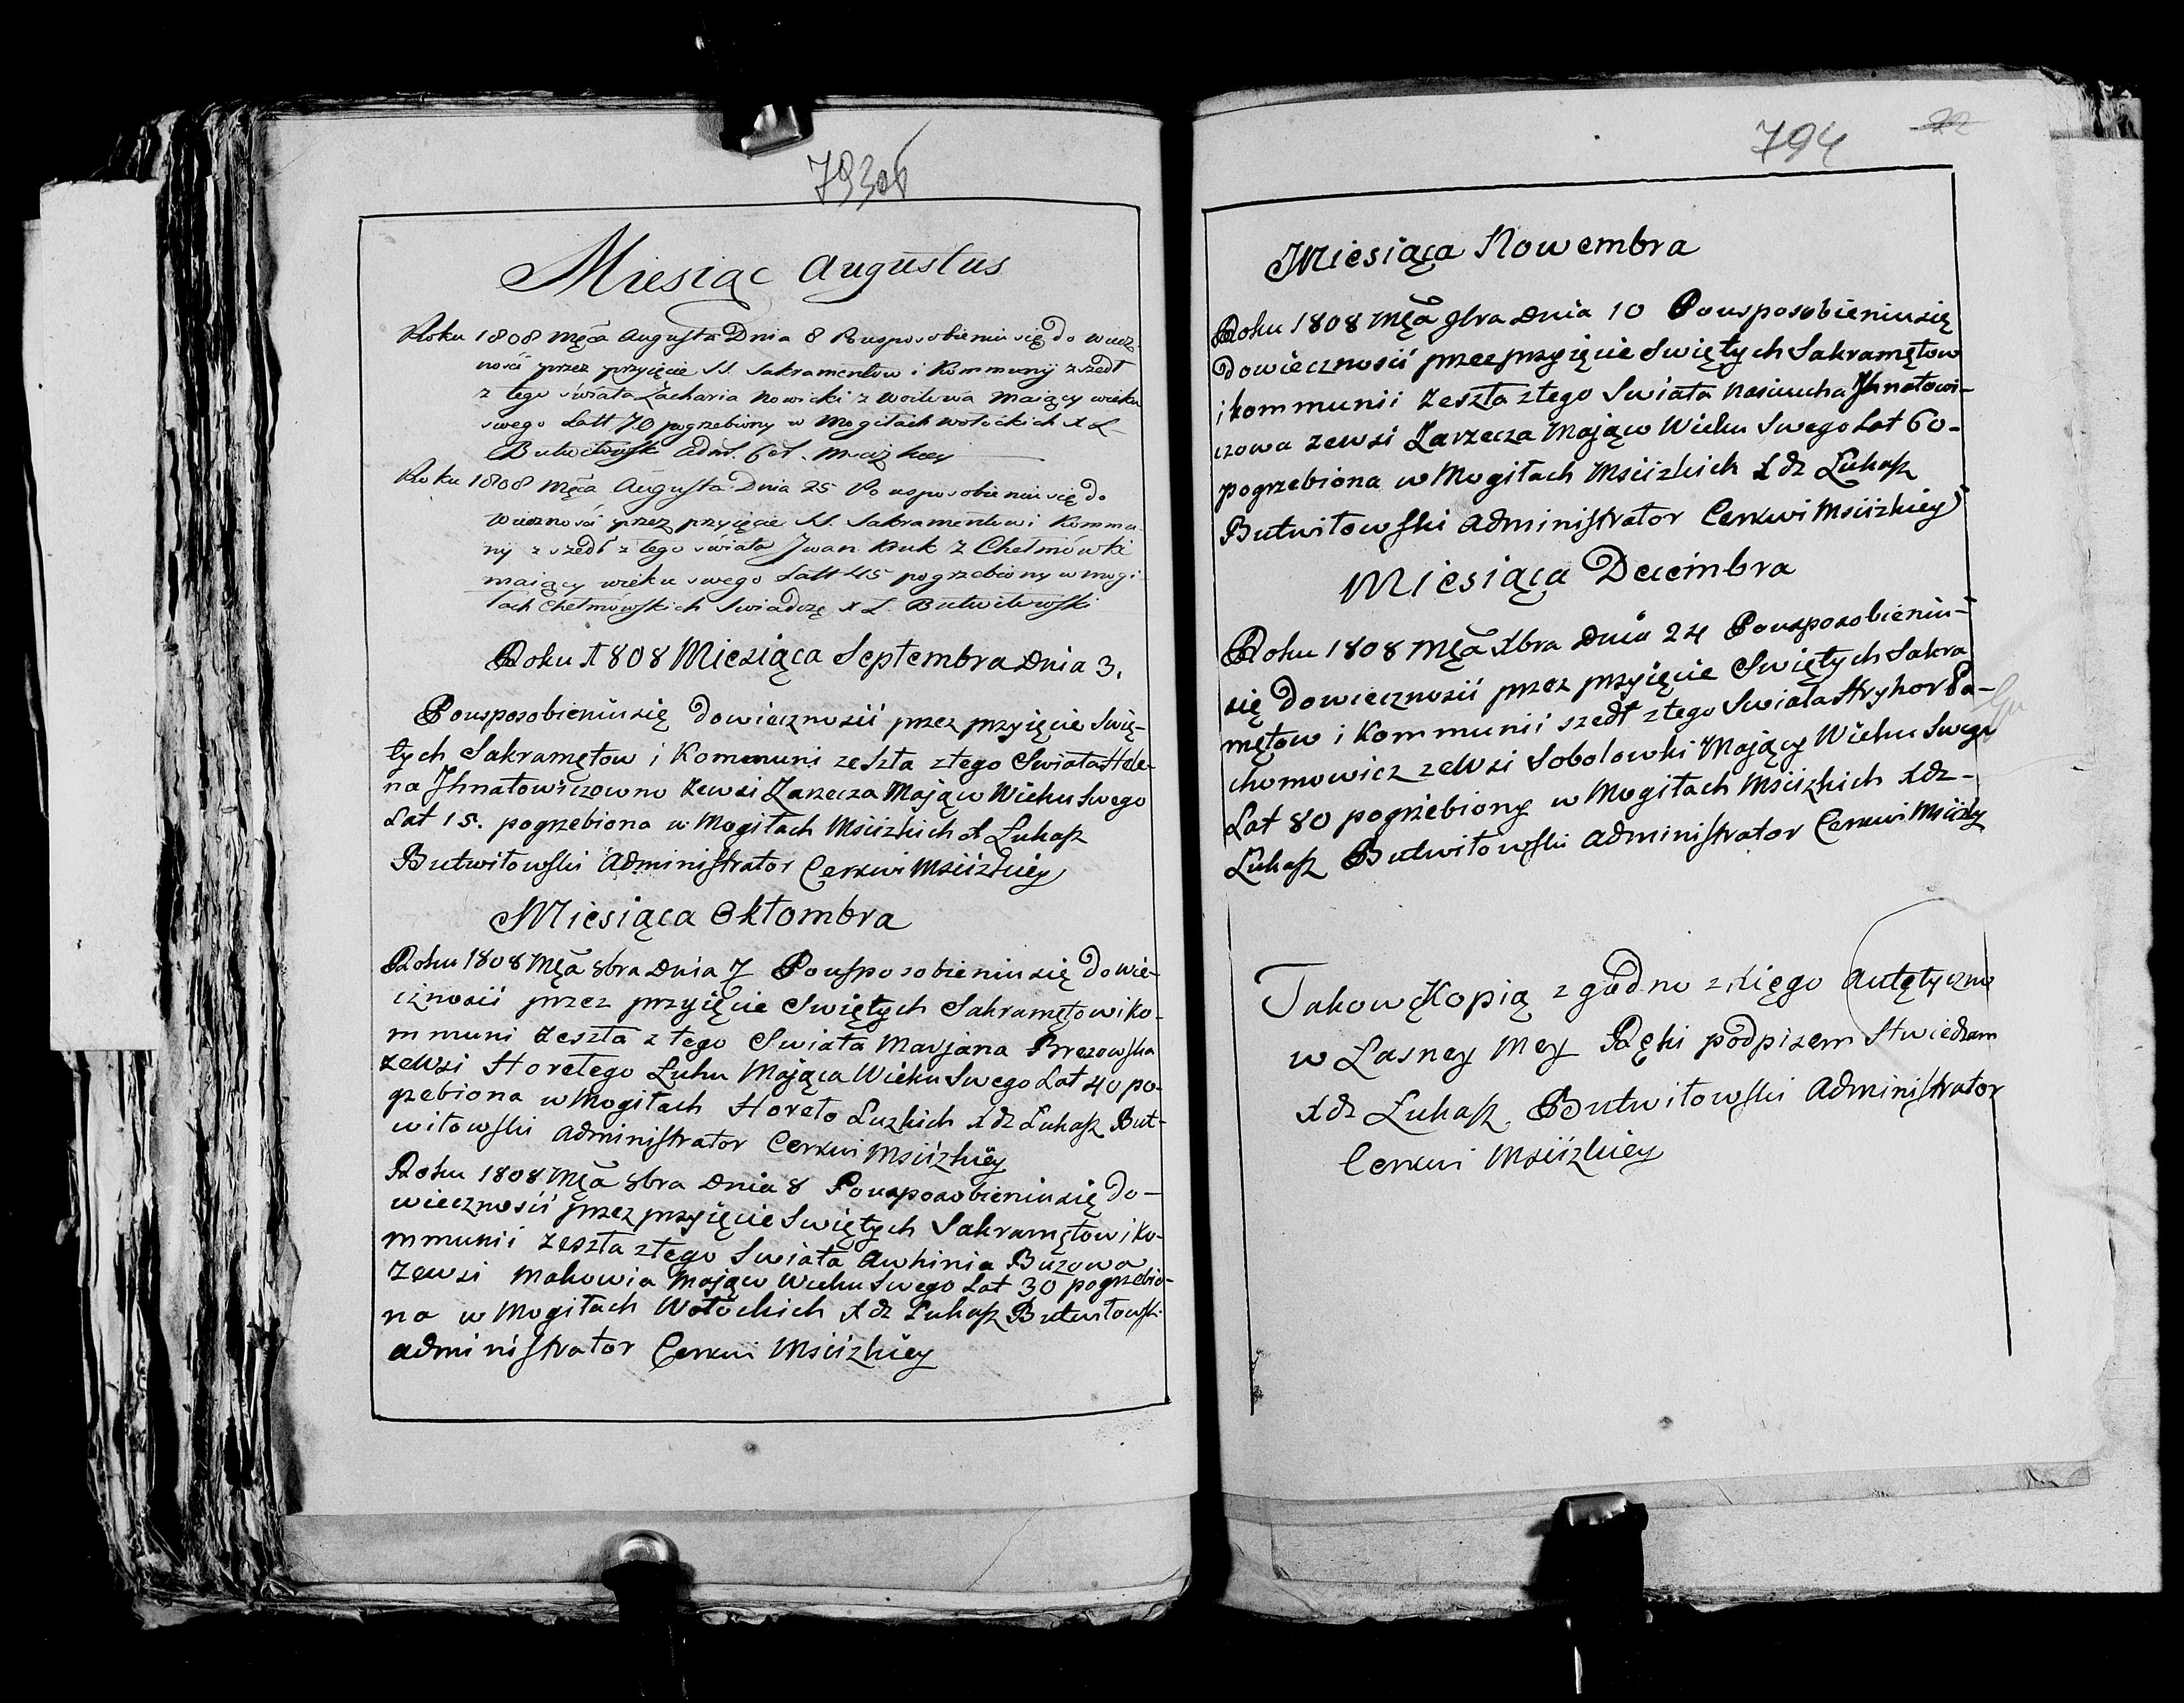 793об
Miesiąc Augustus
Roku 1808 Mca Augusta Dnia 8 Po usposobieniu się do wiecz-
ności przez przyięcie SS. Sakramentow i Kommunij zszedł
z tego świata Zacharia Nowicki z maiący wieku
swego Latt 70 pogrzebiony w Mogiłach Wołóckich X Ł
Butwiłowski
Roku 1808 Mca Augusta Dnia 25 Po usposobieniu się do
Wieczności przez przyięcie SS. Sakramentow i Kommu-
ny zszedł z tego świata Jwan Kuk z Chełmówki
maiący wieku swego Latt 45 pogrzebiony w mogi-
łach Chełmówskich Swiadczę X Ł Butwiłowski
Roku 1808 Miesiąca Septembra Dnia 3.
Po usposobieniu się do wiecznosii przez przyięcie Swię-
tych Sakramętow i Kommuni zeszła z tego Swiata Hele-
na Jhnatowiczowno zewsi Zarzecza Mająco Wieku Swego
Lat 15. pogrzebiona w Mogiłach Msiizkich X Łukasz
Butwiłowski Administrator Cerkwi Msiizkiey
Miesiąca Oktombra
Roku 1808 Męa 8bra Dnia 7 Po usposobieniu się do wie-
cznosii przez przyięcie Swiętych Sakramętow i ko-
mmuni zeszła z tego Swiata Marjana Brezowska
zewsi Horełego Luhu Mająca Wieku Swego Lat 40 po-
grzebiona w Mogiłach Horeło Luzkich Xdz Łukasz But-
wiłowski Administrator Cerkwi Msiizkiey
Roku 1808 Męa 8bra Dnia 8 Po usposobieniu się do-
wiecznosii przez przyięcie Swiętych Sakramętow i ko-
mmunii zeszła z tego Swiata Awhinia Buzowa
zewsi Makowia Mająco Wieku Swego Lat 30 pogrzebio-
na w Mogiłach Wołockich Xdz Łukasz Butwiłowski
Administrator Cerkwi Msiizkiey
794
22
Miesiąca Nowembra
Roku 1808 Męa 9bra Dnia 10 Po usposobieniu się
do wiecznosii przez przyięcie Swiętych Sakramętow
i kommunii zeszła z tego Swiata Nasiucha Jhnatowi-
czowa zewsi Zarzecza Mająco Wieku Swego Lat 60-
pogrzebiona w Mogiłach Msiizkich Xdz Łukasz
Butwiłowski Administrator Cerkwi Msiizkiey
Miesiąca Decembra
Roku 1808 Męa Xbra Dnia 24 Po usposobieniu-
się do wiecznosii przez przyięcie Swiętych Sakra
mętow i Kommunii szedł z tego Swiata Hryhor Pa-
chomowicz zewsi Sobolowki Mający Wieku Swego
Lat 80 pogrzebiony w Mogiłach Msiizkich Xdz-
Łukasz Butwiłowski Administrator Cerkwi
Takow Kopią zgodno z autętyczno
w Łasney Mey Ręki podpisem Stwiedzam
Xdz Łukasz Butwiłowski Administrator
Cerkwi Msiizkiey